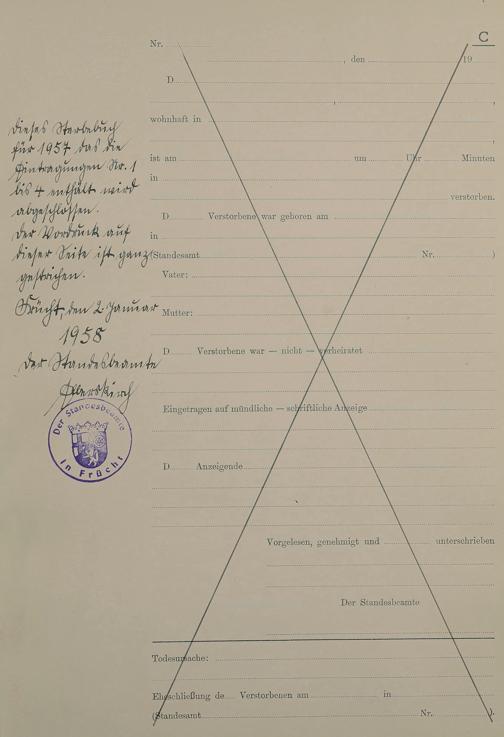 C
Nr.
, den 19
D
,
wohnhaft in
,
ist am um Uhr Minuten
in
verstorben.
D Verstorbene war geboren am
in
(Standesamt Nr. )
Vater:
Mutter:
D Verstorbene war — nicht — verheiratet
Eingetragen auf mündliche — schriftliche Anzeige
D Anzeigende
Vorgelesen, genehmigt und unterschrieben
Der Standesbeamte
Todesursache:
Eheschließung de Verstorbenen am in
(Standesamt Nr. ).
Dieses Sterbebuch
für 1957 das die
Eintragungen Nr. 1
bis 4 enthält wird
abgeschlossen.
Der Vordruck auf
dieser Seite ist ganz
gestrichen.
Frücht, den 2. Januar
1958
Der Standesbeamte
Der Standesbeamte
in Frücht